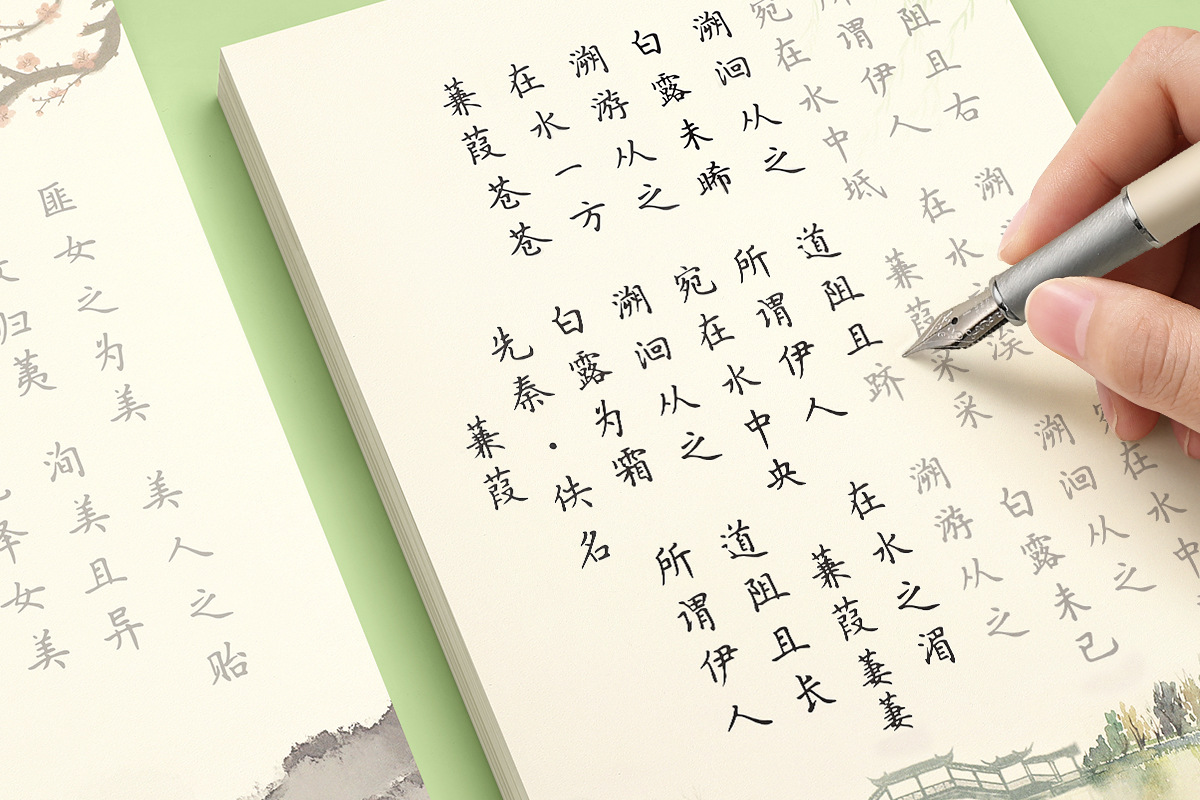 女美
归荑 洵美且异
匪女之为美 美人之贻
蒹葭
先秦·佚名
蒹葭苍苍 白露为霜 所谓伊人
在水一方 溯洄从之 道阻且长
溯游从之 宛在水中央 蒹葭萋萋
白露未晞 所谓伊人 在水之湄
溯洄从之 道阻且跻 溯游从之
宛在水中坻 蒹葭采采 白露未已
谓伊人 在水之涘 溯洄从之
阻且右 溯 在水中